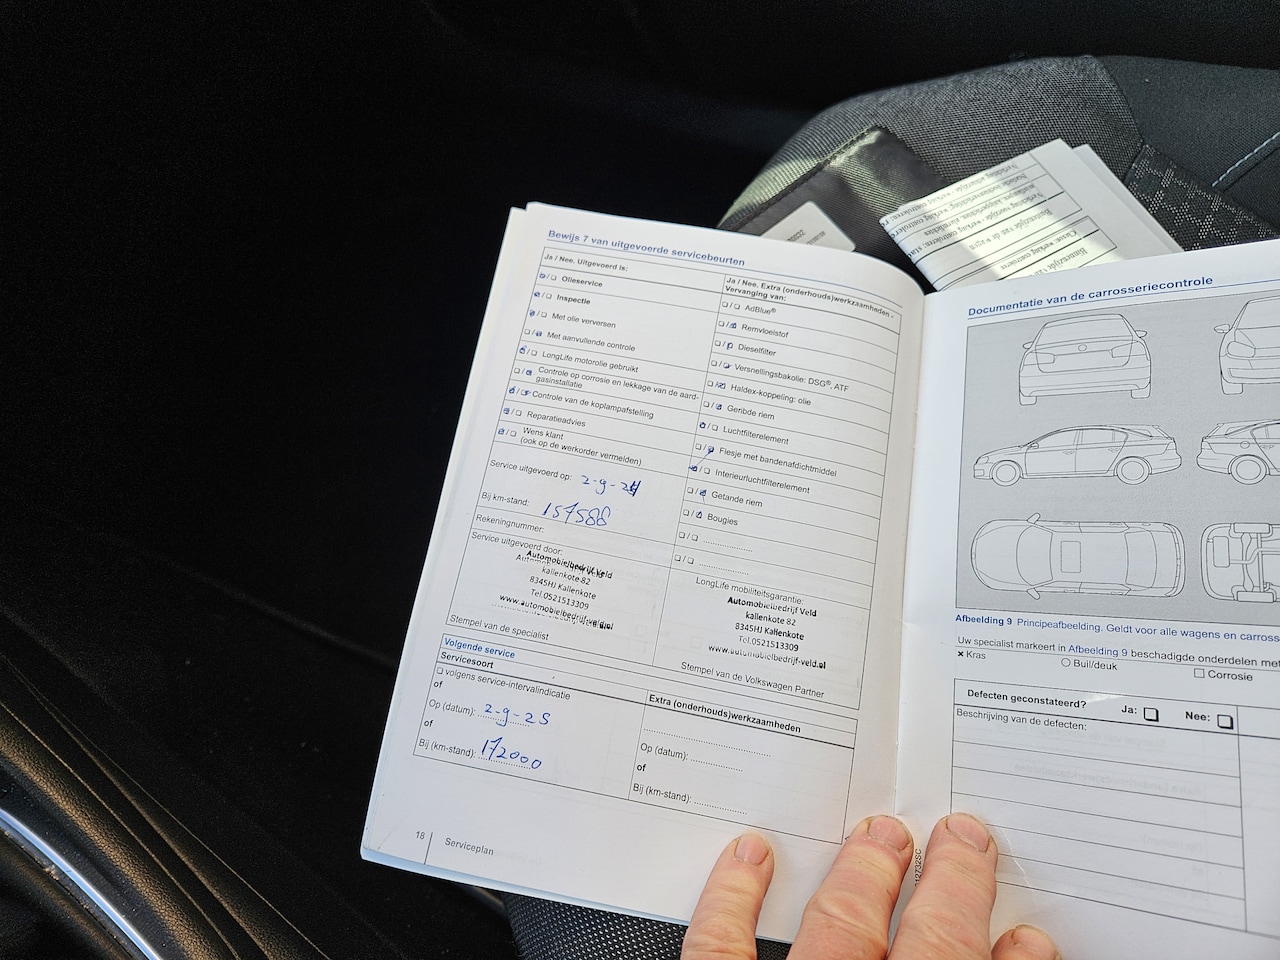 Bewijs 7 van uitgevoerde servicebeurten
Ja / Nee. Uitgevoerd is:
Olieservice
Inspectie
Met olie verversen
Met aanvullende controle
LongLife motorolie gebruikt
Controle op corrosie en lekkage van de aard-
gasinstallatie
Controle van de koplampafstelling
Reparatieadvies
Wens klant
(ook op de werkorder vermelden)
Service uitgevoerd op: 2-9-24
Bij km-stand: 157588
Rekeningnummer:
Service uitgevoerd door:
Automobielbedrijf Veld
kallenkote 82
8345HJ Kallenkote
Tel.0521513309
www.automobielbedrijf-veld.nl
Stempel van de specialist
Ja / Nee. Extra (onderhouds)werkzaamheden -
Vervanging van:
AdBlue®
Remvloeistof
Dieselfilter
Versnellingsbakolie: DSG®, ATF
Haldex-koppeling: olie
Geribde riem
Luchtfilterelement
Flesje met bandenafdichtmiddel
Interieurluchtfilterelement
Getande riem
Bougies
LongLife mobiliteitsgarantie:
Automobielbedrijf Veld
kallenkote 82
8345HJ Kallenkote
Tel.0521513309
www.automobielbedrijf-veld.nl
Stempel van de Volkswagen Partner
Volgende service
Servicesoort
volgens service-intervalindicatie
of
Op (datum): 2-9-25
of
Bij (km-stand): 172000
Extra (onderhouds)werkzaamheden
Op (datum):
of
Bij (km-stand):
18 Serviceplan
Documentatie van de carrosseriecontrole
Afbeelding 9 Principeafbeelding. Geldt voor alle wagens en carross
Uw specialist markeert in Afbeelding 9 beschadigde onderdelen met
Kras
Buil/deuk
Corrosie
Defecten geconstateerd? Ja: Nee:
Beschrijving van de defecten: